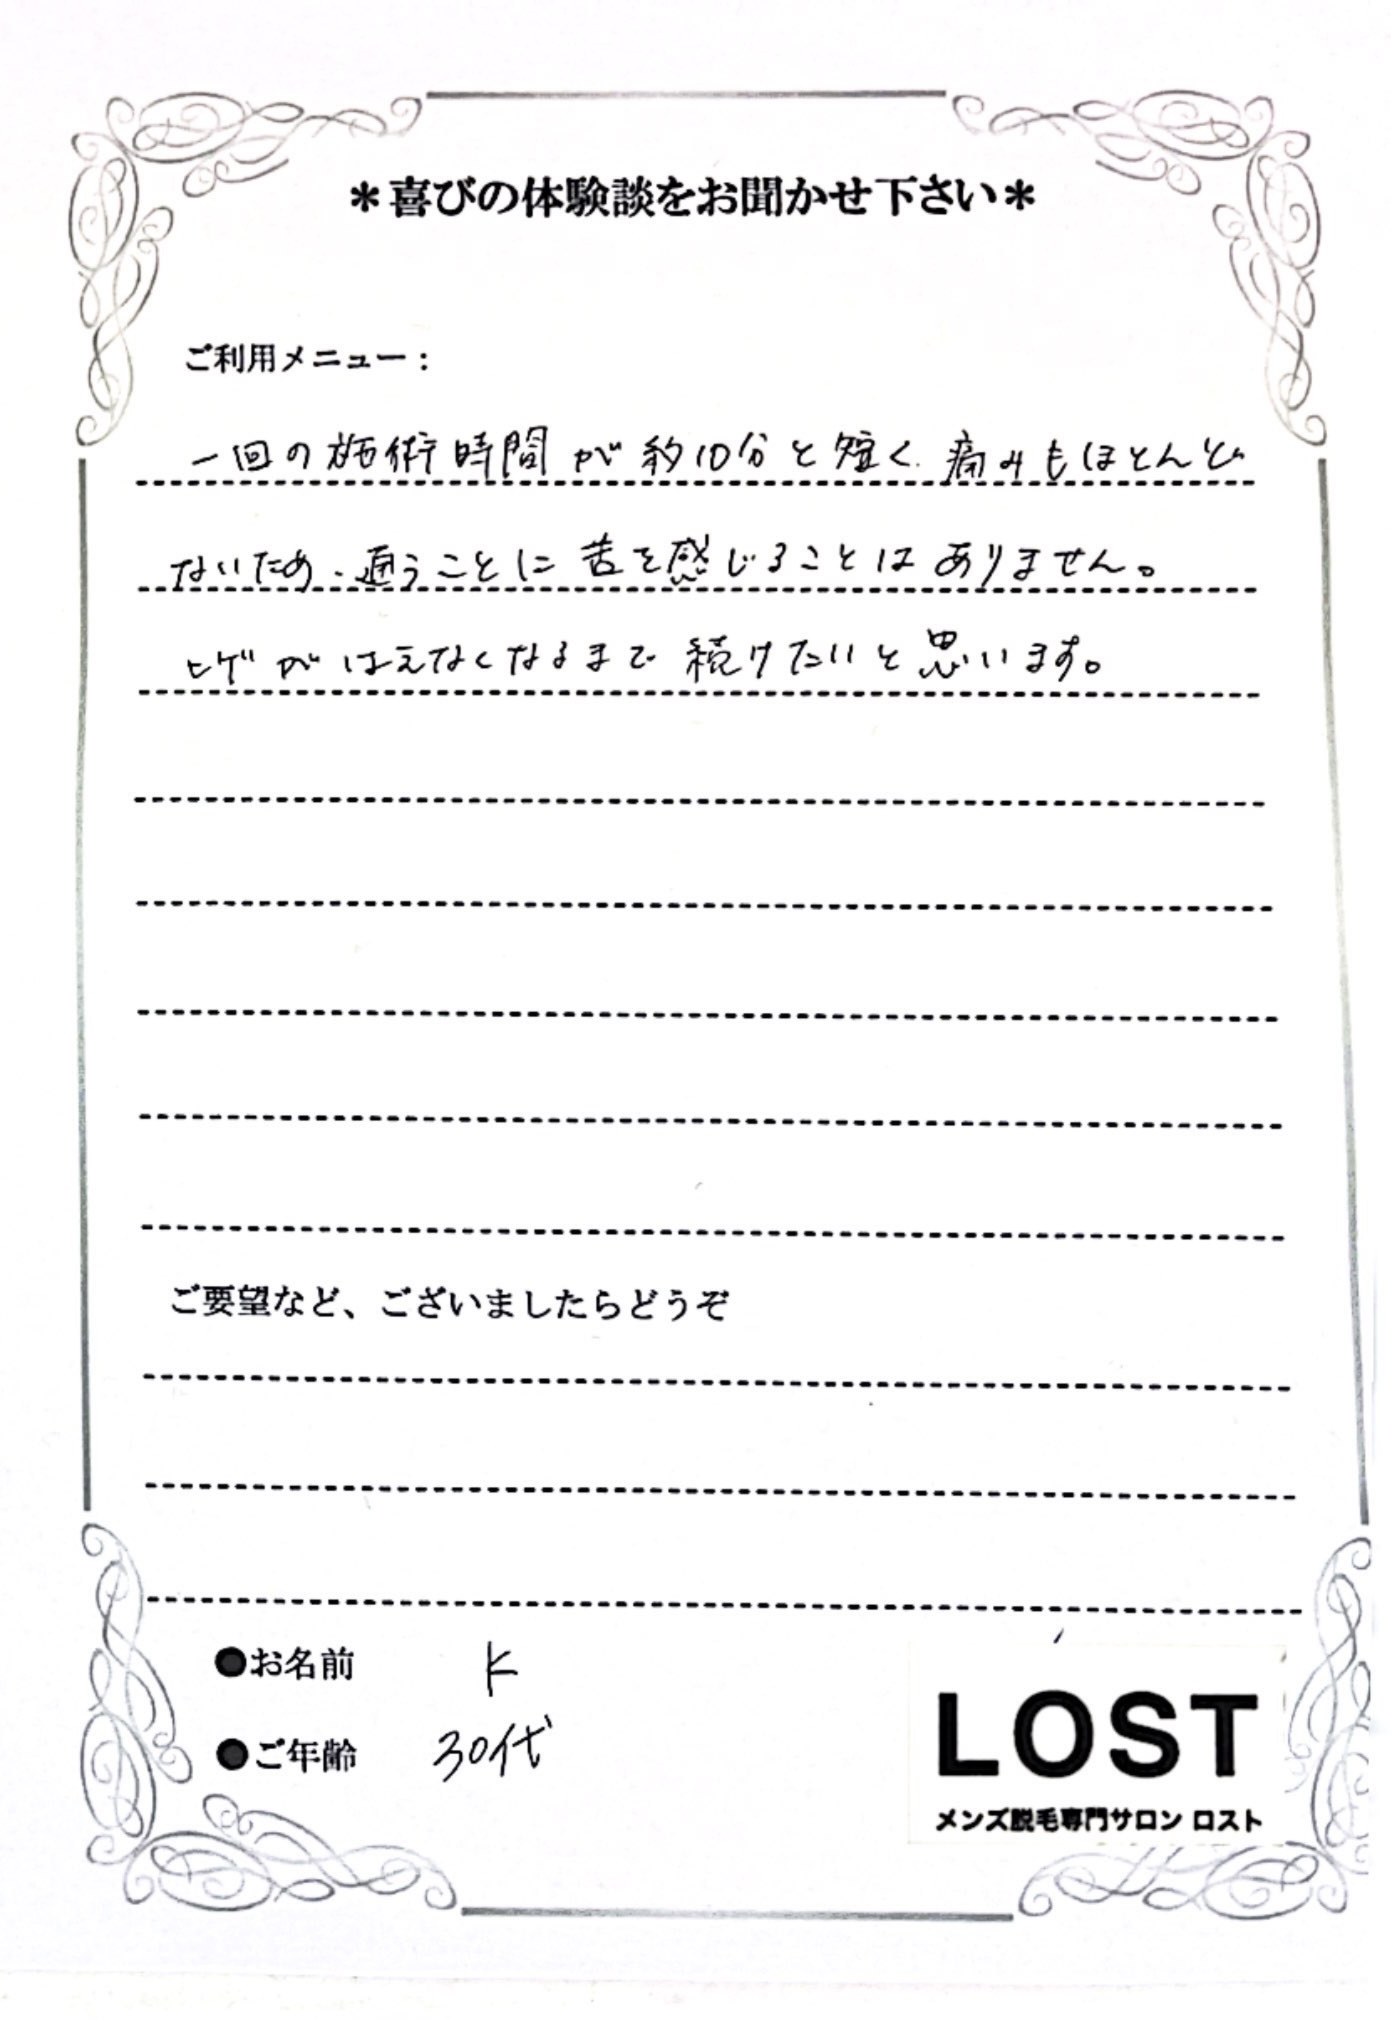 ＊喜びの体験談をお聞かせ下さい＊
ご利用メニュー：
一回の施術時間が約10分と短く、痛みもほとんど
ないため、通うことに苦を感じることはありません。
ヒゲがはえなくなるまで続けたいと思います。
ご要望など、ございましたらどうぞ
●お名前 K
●ご年齢 30代
LOST
メンズ脱毛専門サロン ロスト